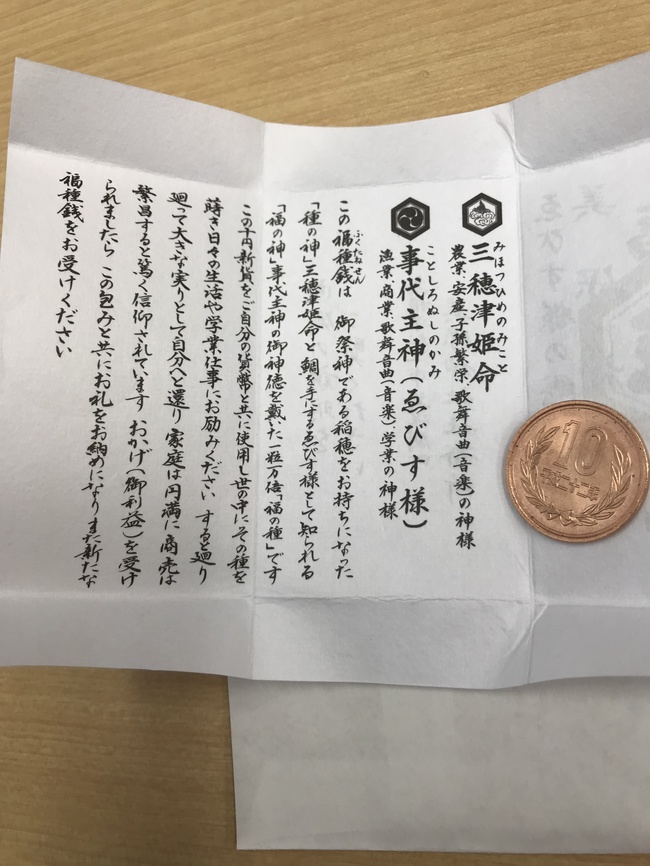 みほつひめのみこと
三穂津姫命
農業、安産、子孫繁栄、歌舞音曲(音楽)の神様
ことしろぬしのかみ
事代主神(ゑびす様)
漁業、商業、歌舞音曲(音楽)、学業の神様
ふくたねせん
この福種銭は 御祭神である稲穂をお持ちになった
「種の神」三穂津姫命と鯛を手にするゑびす様として知られる
「福の神」事代主神の御神徳を戴いた一粒万倍「福の種」です
この十円新貨をご自分の貨幣と共に使用し世の中にその種を
蒔き日々の生活や学業仕事にお励みください すると廻り
廻って大きな実りとして自分へと還り 家庭は円満に 商売は
繁昌すると篤く信仰されています おかげ(御利益)を受け
られましたら この包みと共にお礼をお納めになりまた新たな
福種銭をお受けください
10